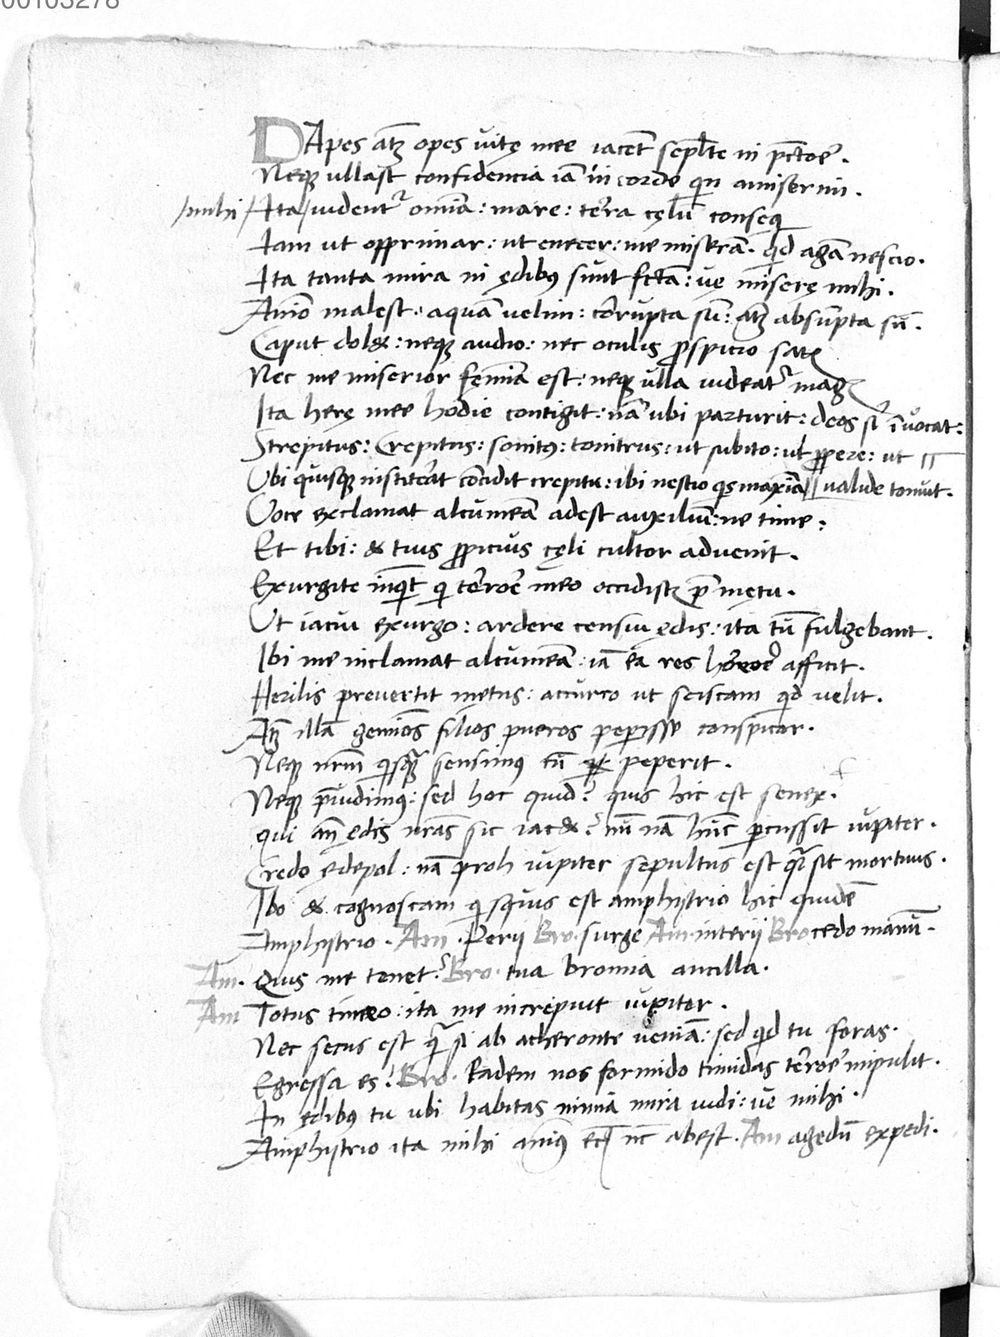 00103278
DApes atq; opes vitę mee iacent sepulte in pectore.
Neq; ullast confidencia iam in corde quin amiserim.
/mihi/ Ita/videntur omnia: mare: terra cęlum conseq
Iam ut opprimar: ut enecer: me miseram. quid agam nescio.
Ita tanta mira in ędibus sunt fcta: vę miserę mihi.
Animo malest: aquam velim: corrupta sum: atq; absumpta sum.
Caput dolet: neq; audio: nec oculis prospicio satis
Nec me miserior femina est: neq; ulla videatur magis
Ita herę mee hodie contigit: nam ubi parturit: deos sibi invocat:
Strepitus: Crepitus: sonitus: tonitrus: ut subito: ut propere: ut
Ubi quisq; institerat concidit crepitu: ibi nescio quis maxima // valide tonuit.
Voce exclamat alcumena adest auxilium: ne time:
Et tibi: & tuis propicius cęli cultor advenit.
Exurgite inquit qui terrore meo occidistis prę metu.
Ut iacui exurgo: ardere censui ędis: ita tum fulgebant.
Ibi me inclamat alcumena: iam ea res horrore afficit.
Herilis prevertit metus: accurro ut sciscam quid velit.
Atq; illam geminos filios pueros peperisse conspicor.
Neq; nrm quisquam sensimus cum peperit.
Neq; prividimus: sed hoc quid? quis hic est senex.
qui ante ędis nras sic iacet? num nam hunc percussit iupiter.
Credo edepol: nam proh iupiter sepultus est quasi sit mortuus.
Ibo & cognoscam quisquis est amphitrio hic quidem
Amphitrio. Am. Perii Bro. surge Am. interii Bro cedo manum.
Am. Quis me tenet? Bro. tua bromia ancilla.
Am Totus timeo: ita me increpuit iupiter.
Nec secus est quam si ab acheronte veniam: sed quid tu foras.
Egressa es? Bro. Eadem nos formido timidas terrore impulit.
In ędibus tu ubi habitas nimia mira vidi: vę mihi.
Amphitrio ita mihi animus nc abest. Am agedum expedi.